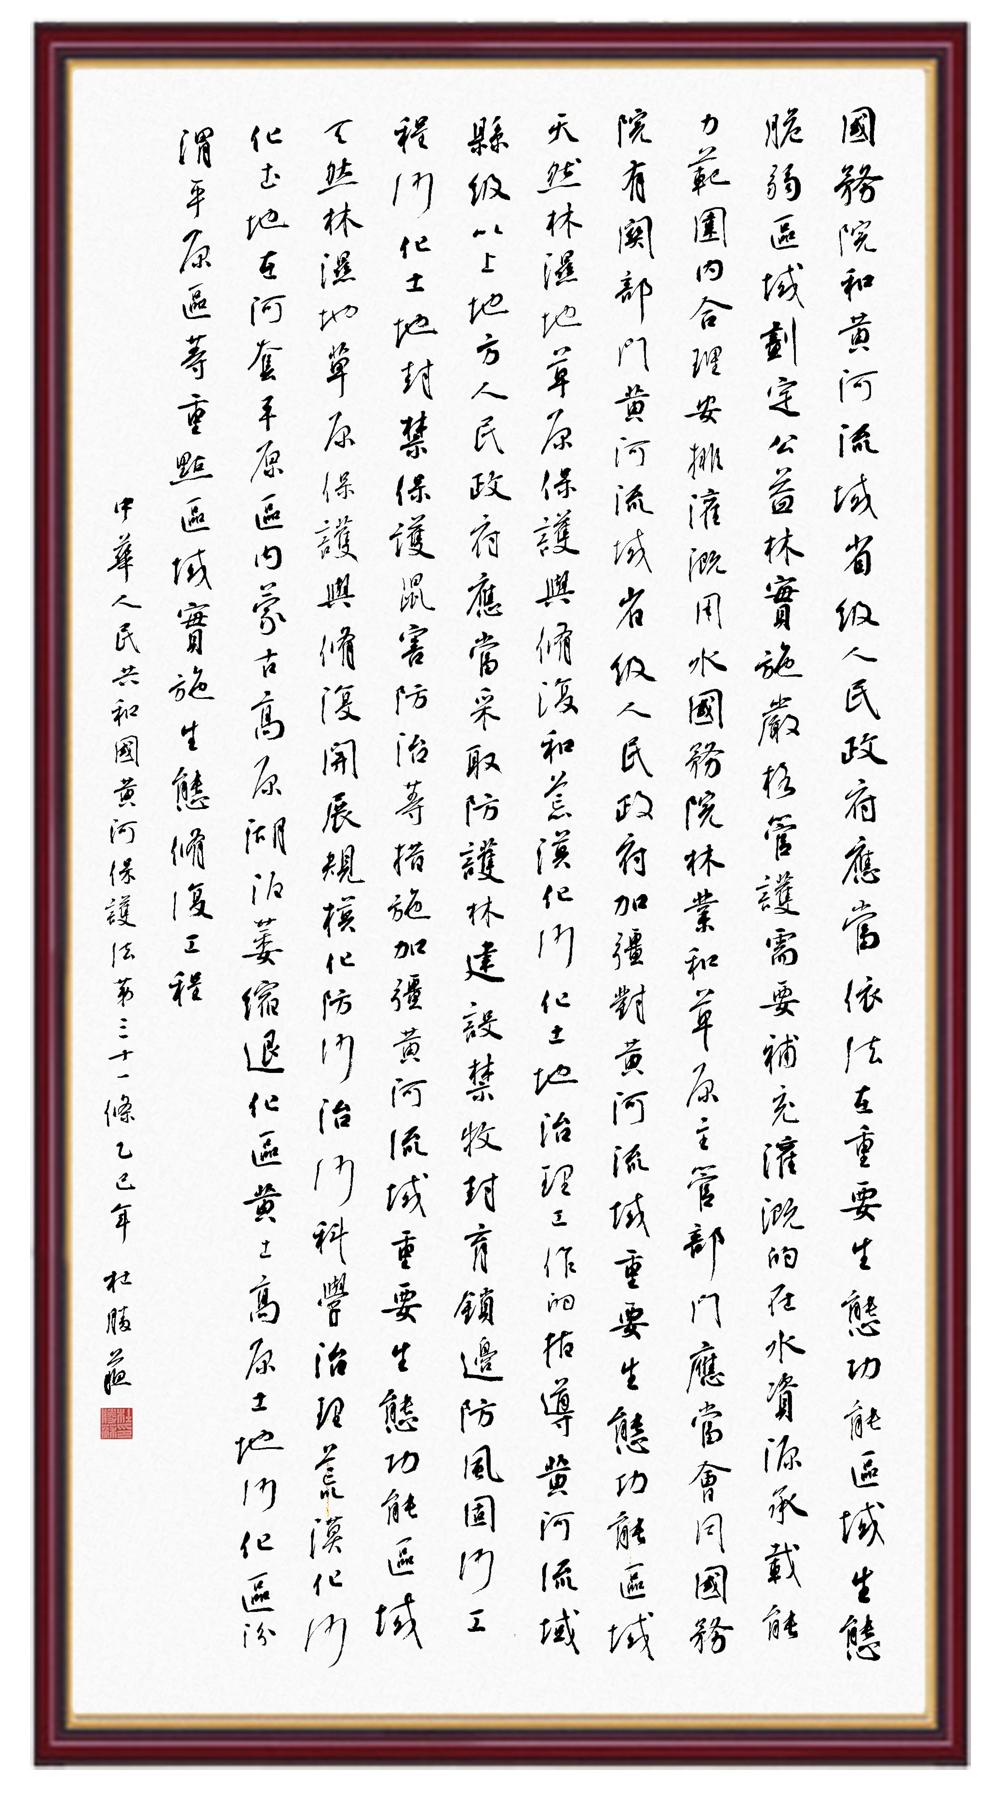 國務院和黄河流域省级人民政府應當依法在重要生態功能區域生態
脆弱區域劃定公益林實施嚴格管護需要補充灌溉的在水資源承載能
力範圍内合理安排灌溉用水國務院林業和草原主管部門應當會同國務
院有關部門黄河流域省级人民政府加彊對黄河流域重要生態功能區域
天然林濕地草原保護與脩復和荒漠化沙化土地治理工作的指導黄河流域
縣级以上地方人民政府應當采取防護林建設禁牧封育鎖邊防風固沙工
程沙化土地封禁保護鼠害防治等措施加彊黄河流域重要生態功能區域
天然林濕地草原保護與脩復開展規模化防沙治沙科學治理荒漠化沙
化土地在河套平原區内蒙古高原湖泊萎缩退化區黄土高原土地沙化區汾
渭平原區等重點區域實施生態脩復工程
中華人民共和國黄河保護法第三十一條乙巳年 杜勝蕴